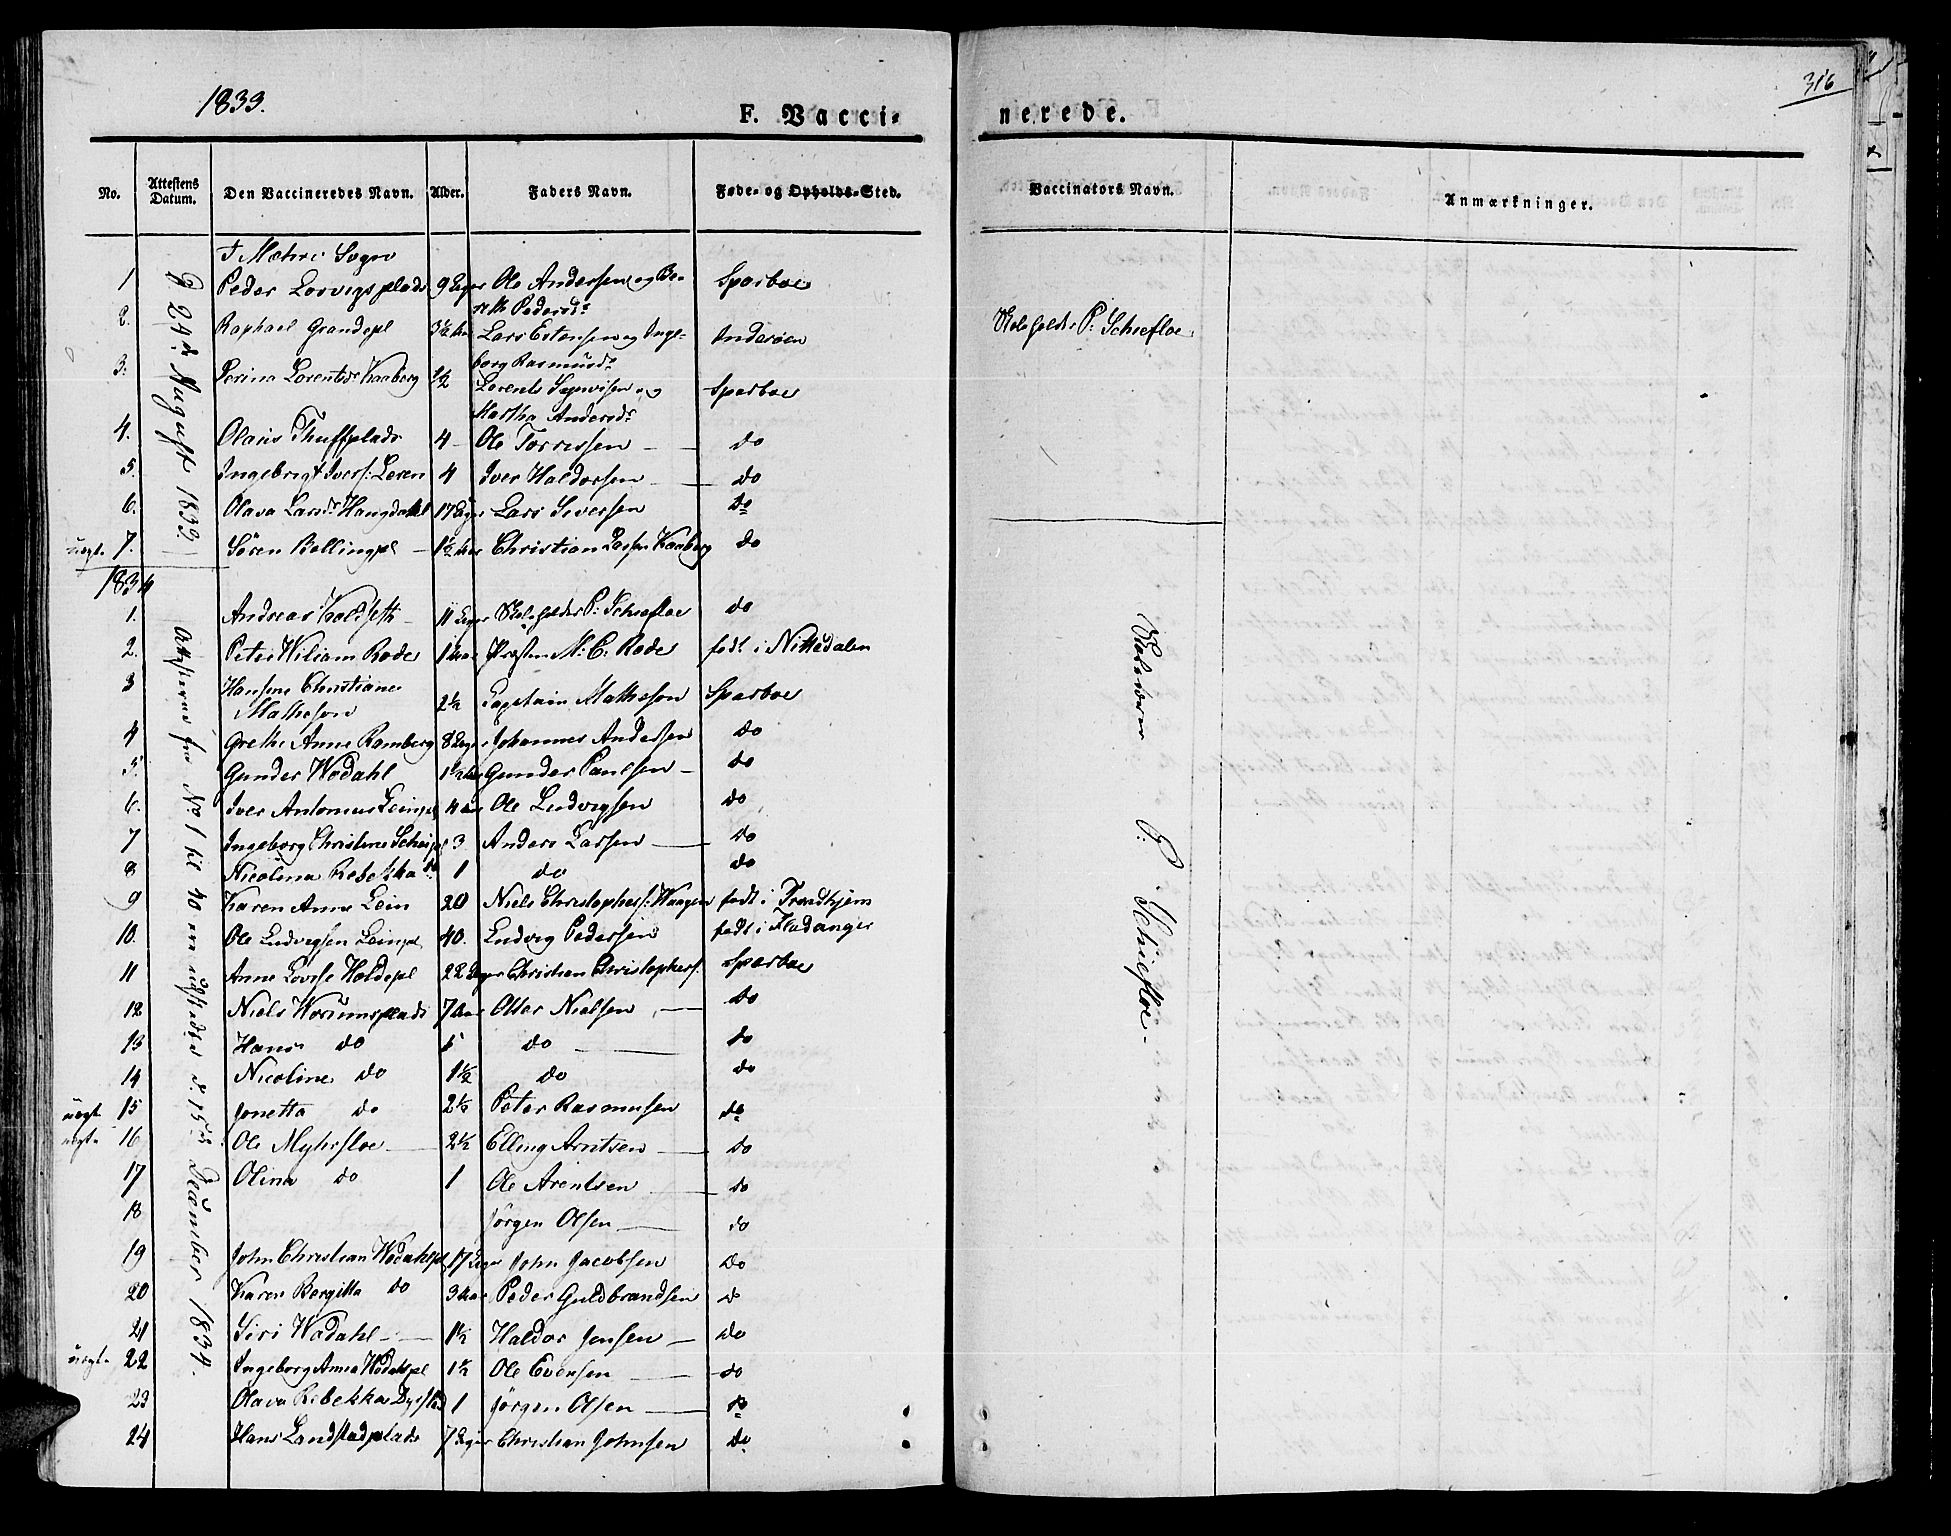 1833.
316
F. Vacci-
nerede.
No. Attestens Datum. Den Vaccineredes Navn. Alder. Faders Navn. Føde- og Opholds-Sted. Vaccinators Navn. Anmærkninger.
Sogn
d 24de August 1833
1 Peder 9 Uger Ole Andersen og Be-
reth Pedersdr Sparboe
2. Raphael Grandepl 3½ Aar Lars Estensen og Inge-
borg Rasmusdr Inderøen P: Schiefloe
3. Lorentsdr Kaaberg 1½ Lorents og
Martha Andersdr Sparboe
4. Olaus 4 Ole Torressen do
5. Ingebrigt Ivers: Leren 4 Iver Haldorsen do
6. Olava Larsdr Haugdahl 17 Uger Lars Siversen do
uægt. 7. Sören Bollingpl 1½ Aar Christian Larsen Kaaberg do
1834
Attesterne fra No 1 til 40 ere udstedte d. 15de December 1834.
P. Schiefloe
1. Andreas 11 Uger P: Schiefloe do
2. Peter Wiliam Rode 1 Aar Præsten M: C. Rode født i Nittedalen
3 Hansine Christiane
Matheson 2½ Captain Matheson Sparboe
4 Grethe Anne Ramberg 8 Uger Johannes Andersen do
5. Gunder Wodahl 1½ Aar Gunder Paulsen do
6. Iver Antonius Leinpl 4 Aar Ole Ludvigsen do
7 Ingeborg Christine 3 Anders Larsen do
8 Nicolina Rebekka do 1 do do
9 Karen Anne Lein 20 Niels Christophers: Waagen født i Trondhjem
10. Ole Ludvigsen Leinpl 40. Ludvig Pedersen født i Fladanger
11 Anne Lovise Holdepl 22 Uger Christian Christophers. Sparboe
12 Niels Worumsplads 7 Aar Otter Nielsen do
13 Hans do 5 do do
14 Nicoline do 1½ do do
uægt 15 Jonetta do 2½ Peter Rasmusen do
uægte 16 Ole Myhrsloe 2½ Elling Arntsen do
17 Olina do 1 Ole Arentsen do
18 Jörgen Olsen do
19 John Christian Wodahlspl 17 Uger John Jacobsen do
20 Karen Bergitta do 3 Aar Peder Guldbrandsen do
21 Siri Wodahl 1½ Haldor Jensen do
uægte 22 Ingeborg Anna Wodahlpl 1½ Ole Evensen do
23 Olava Rebekka Dyrstad 1 Jörgen Olsen do
24 Hans Landstadplads 7 Uger Christian Johnsen do